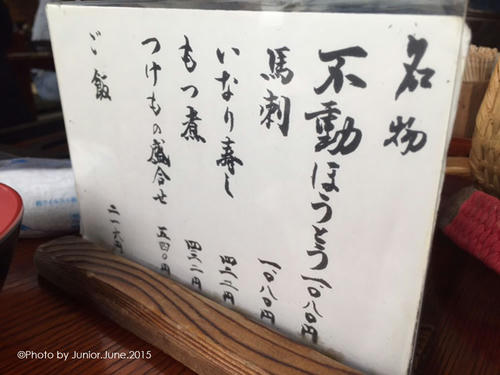 名物
不動ほうとう 一、〇八〇円
馬刺 一、〇八〇円
いなり寿し 四三二円
もつ煮 四三二円
つけもの盛合せ 五四〇円
ご飯 二一六円
©Photo by Junior.June.2015